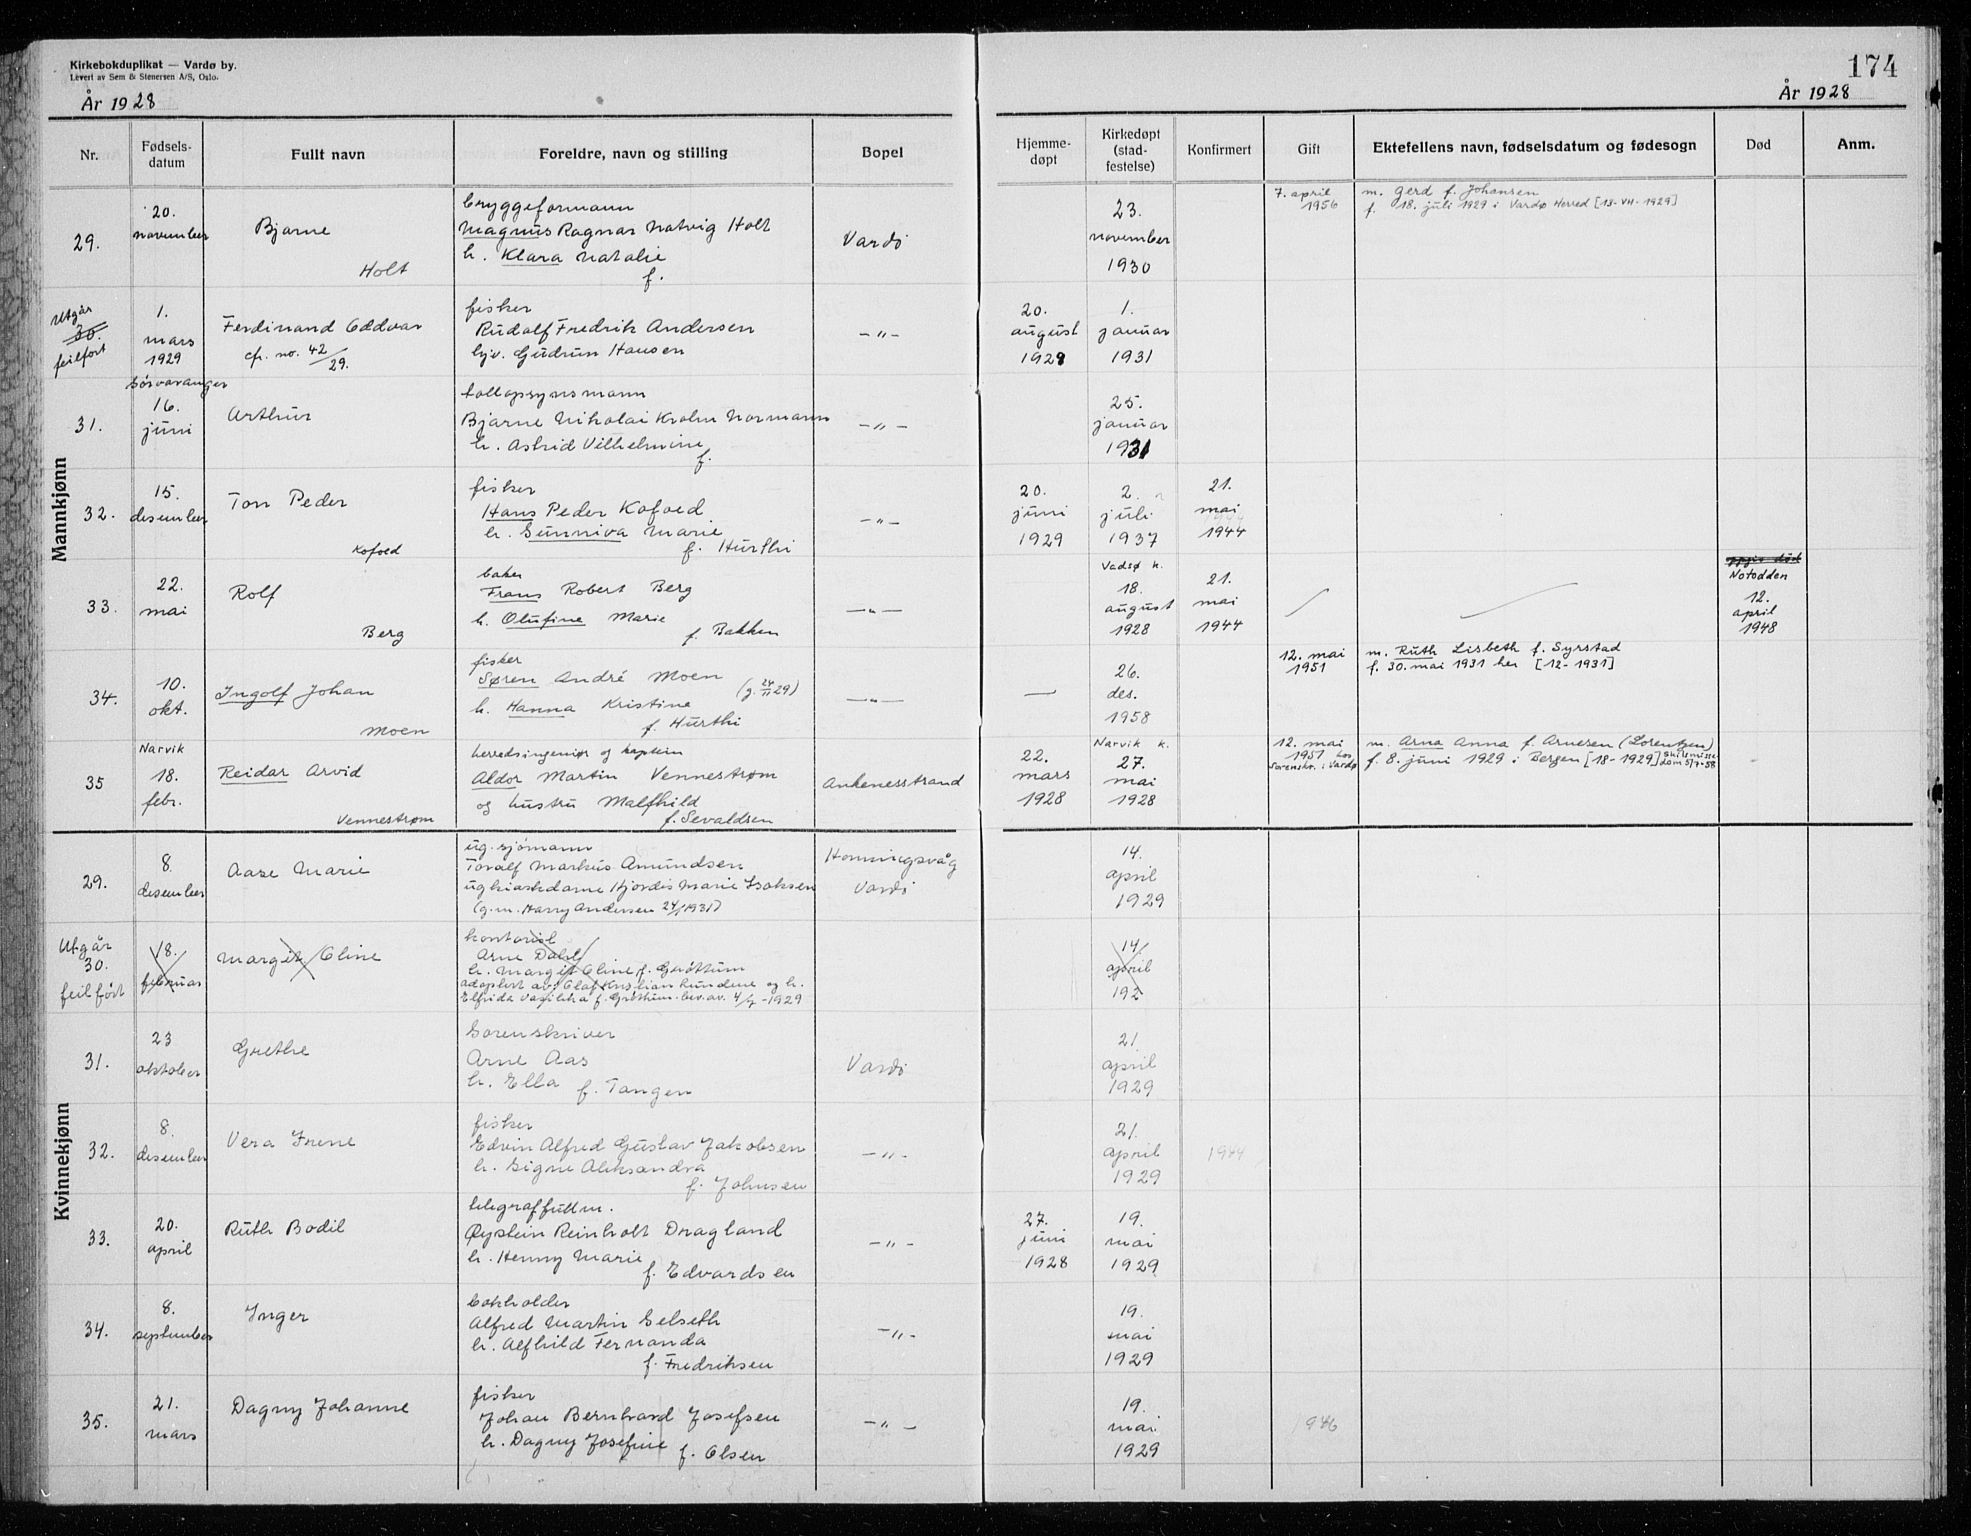 Kirkebokduplikat — Vardø by.
Levert av Sem & Stenersen A/S, Oslo.
År 1928
174
År 1928
Nr. Fødsels-datum Fullt navn Foreldre, navn og stilling Bopel Hjemme-døpt Kirkedøpt (stad-festelse) Konfirmert Gift Ektefellens navn, fødselsdatum og fødesogn Død Anm.
Mannkjønn
29.
20.
november
Bjarne
Holt
bryggeformann
Magnus Ragnar Natvig Holt
h. Klara Natalie
f.
Vardø
23.
november
1930
7. april
1956
m. Gerd f. Johansen
f. 18. juli 1929 i Vardø Herred [13-VH-1929]
Utgår
30.
feilført
1.
mars
1929
Sørvaranger
Ferdinand Oddvar
cfr. no. 42/29.
fisker
Rudolf Fredrik Andersen
hjv. Gudrun Hansen
—〃—
20.
august
1929
1.
januar
1931
31.
16.
juni
Arthur
tollopsynsmann
Bjarne Nikolai Krohn Normann
h. Astrid Vilhelmine
f.
—〃—
25.
januar
1931
32.
15.
desember
Ton Peder
Kofoed
fisker
Hans Peder Kofoed
h. Gunniva Marie
f. Hurthi
—〃—
20.
juni
1929
2.
juli
1937
21.
mai
1944
33.
22.
mai
Rolf
Berg
baker
Frans Robert Berg
h. Olufine Marie
f. Bakken
—〃—
Vadsø k.
18.
august
1928
21.
mai
1944
Notodden
12.
april
1948
34.
10.
okt.
Ingolf Johan
Moen
fisker
Søren André Moen
(g. 24/11 29)
h. Hanna Kristine
f. Hurthi
—〃—
—
26.
des.
1958
12. mai
1951
m. Ruth Lisbeth f. Syrstad
f. 30. mai 1931 her [12-1931]
35
Narvik
18.
febr.
Reidar Arvid
Vennestrøm
herredsingeniør og kaptein
Aldor Martin Vennestrøm
og hustru Malfhild
f. Sevaldsen
Ankenesstrand
22.
mars
1928
Narvik k.
27.
mai
1928
12. mai
1951 hos
Sorenskr. i Vardø
m. Arna Anna f. Arnesen (Lorentzen)
f. 8. juni 1929 i Bergen [18-1929] skilsmisse
dom 5/7-58
Kvinnekjønn
29.
8.
desember
Aase Marie
ug. sjømann
Toralf Markus Amundsen
ug kioskdame Hjørdis Marie Isaksen
(g.m. Harry Andersen 24/1 1931)
Honningsvåg
Vardø
14.
april
1929
Utgår
30.
feilført
18.
februar
Margit Oline
kontorist
Arne Dahl
h. Margit Oline f. Grøttum
adoptert av: Olaf Kristian Rundene og h.
Elfrida Vasilika f. Grøttum. bev. av. 4/7-1929
14
april
192
31.
23
oktober
Grethe
Sorenskriver
Arne Aas
h. Ella f. Tangen
Vardø
21.
april
1929
32.
8.
desember
Vera Irene
fisker
Edvin Alfred Gustav Jakobsen
h. Signe Aleksandra
f. Johnsen
—〃—
21.
april
1929
1944
33.
20.
april
Ruth Bodil
telegraffullm.
Øystein Reinholt Dragland
h. Henny Marie
f. Edvardsen
—〃—
27.
juni
1928
19.
mai
1929
34.
8.
september
Inger
bokholder
Alfred Martin Selseth
h. Alfhild Fernanda
f. Fredriksen
—〃—
19.
mai
1929
35.
21.
mars
Dagny Johanne
fisker
Johan Bernhard Josefsen
h. Dagny Josefine
f. Olsen
—〃—
19.
mai
1929
1946